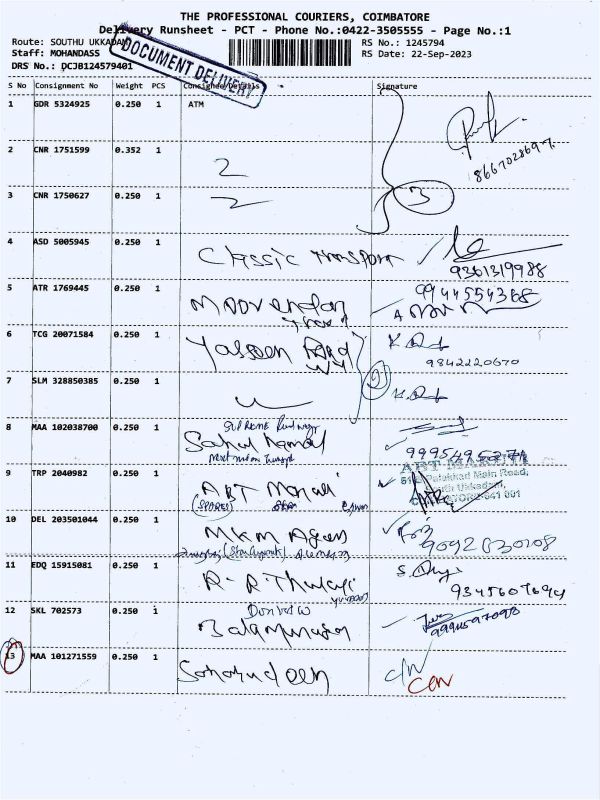 THE PROFESSIONAL COURIERS, COIMBATORE
Delivery Runsheet - PCT - Phone No.:0422-3505555 - Page No.:1
Route: SOUTHU UKKADAM
Staff: MOHANDASS
DRS No.: DCJB124579401
RS No.: 1245794
RS Date: 22-Sep-2023
DOCUMENT DELIVERY
S No Consignment No Weight PCS Consignee/Details Signature
1 GDR 5324925 0.250 1 ATM
8667028697
2 CNR 1751599 0.352 1
3 CNR 1750627 0.250 1
3
4 ASD 5005945 0.250 1 Classic Transport
9361319988
5 ATR 1769445 0.250 1 Moovendan
9944554368
6 TCG 20071584 0.250 1 Yaseen Road
9842220670
7 SLM 328850385 0.250 1
2
8 MAA 102038700 0.250 1
9 TRP 2040982 0.250 1 ART Maruti
Palakkad Main Road,
South Ukkadam,
COIMBATORE-641 001
10 DEL 203501044 0.250 1 MKM Agen
9092030208
11 EDQ 15915081 0.250 1 R. R. Thulasi
9345607694
12 SKL 702573 0.250 1 Balamurugan
13 MAA 101271559 0.250 1 Sahabudeen
C/N
CON